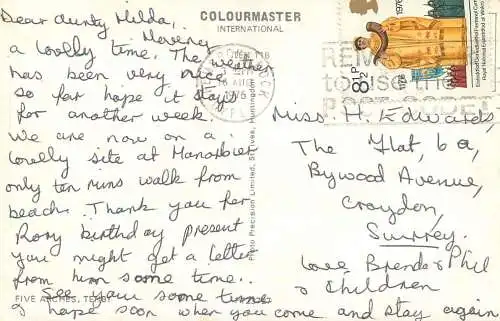 Dear Aunty Hilda,
Having
a lovely time. The weather
has been very nice
so far hope it stays
for another week.
We are now on a
lovely site at Manorbier
only ten mins walk from
beach. Thank you for
Rory birthday present
you might get a letter
from him some time.
See you some time
I hope soon when you come and stay again
Love Brenda & Phil
& Children
Miss H. Edwards,
The Flat, 6a,
Bywood Avenue,
Croydon,
Surrey.
COLOURMASTER
INTERNATIONAL
Photo Precision Limited, St. Ives, Huntingdon
FIVE ARCHES, TENBY
1976
8½P
REMEMBER
to use the
POST CODE
1976